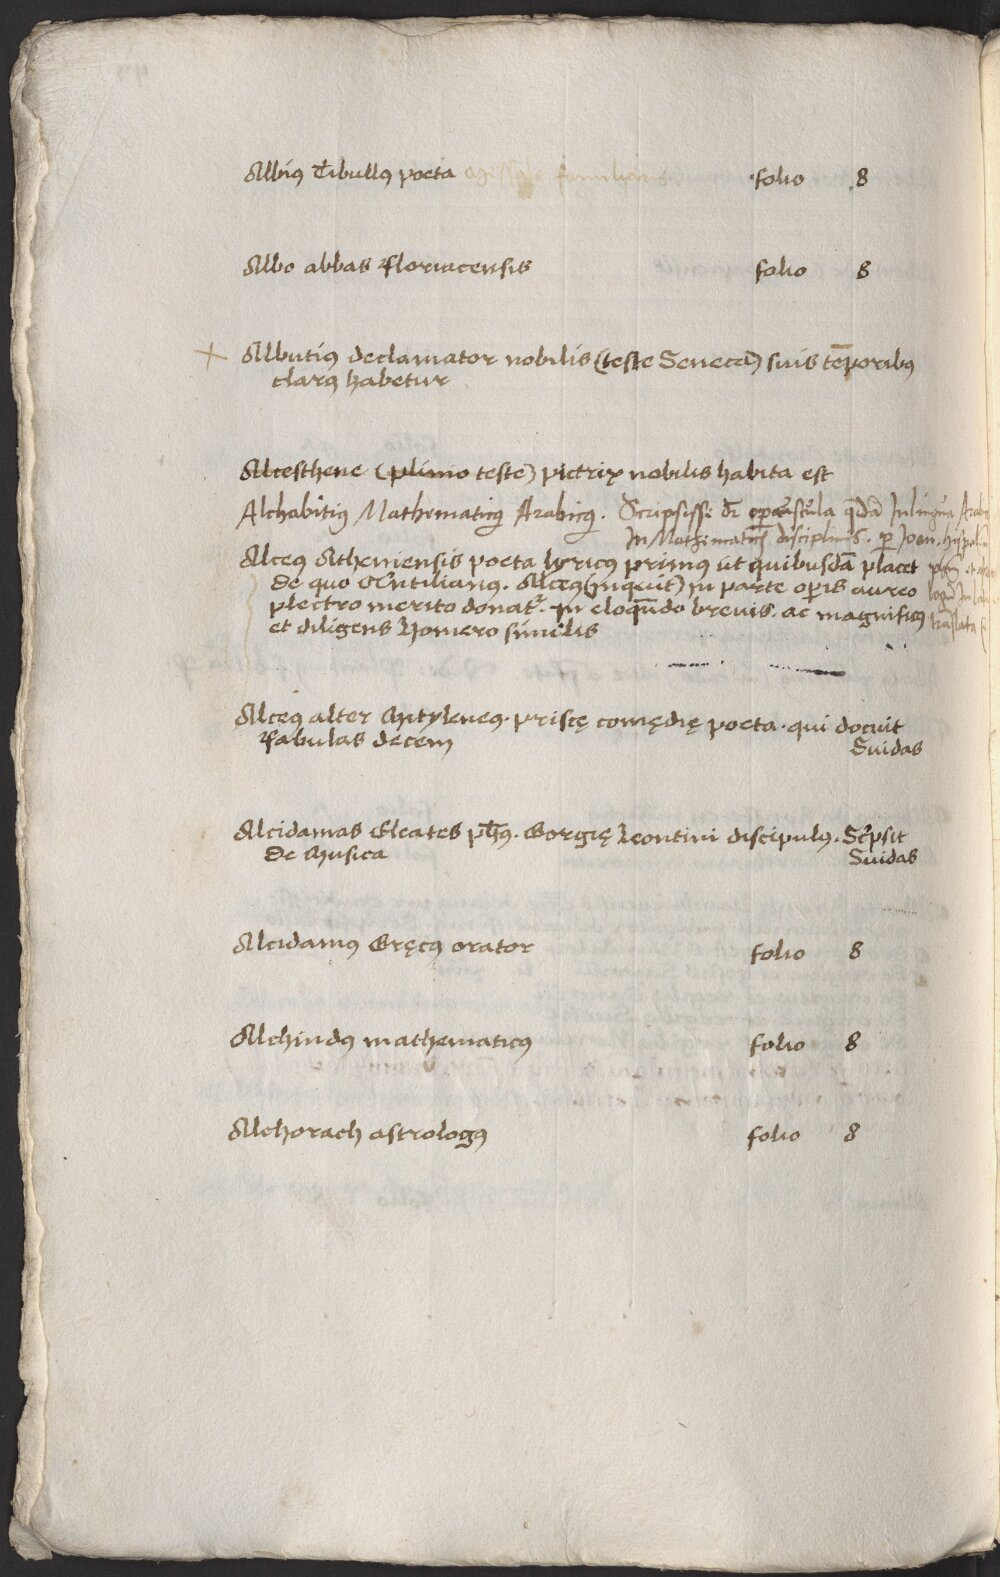 Albiꝰ Tibullꝰ poeta folio 8
Albo abbas Floriacensis folio 8
+ Albutiꝰ declamator nobilis (teste Seneca) suis tēporibꝰ
clarꝰ habetur
Alcesthene (plinio teste) pictrix nobilis habita est
Alchabitiꝰ Mathematicꝰ Arabicꝰ. Scripsisse dr̄ opuscula q̄dā In lingua Arab
In Mathematicis disciplinis. ꝑ Joan. Hispal
Alceꝰ Atheniensis poeta lyricꝰ primꝰ ut quibusdā placet
de quo Quītilianꝰ. Alceꝰ (inquit) in parte oꝑis aureo
plectro merito donatr̄. In eloquēdo brevis. ac magnificꝰ
et diligens Homero similis
traslata
Alceꝰ alter Mityleneꝰ. priscę comędię poeta. qui docuit
Fabulas decem
Suidas
Alcidamas Eleates ph̄ꝰ. Gorgię Leontini discipulꝰ. Scͥpsit
De Musica
Suidas
Alcidamꝰ Gręcꝰ orator folio 8
Alchindꝰ mathematicꝰ folio 8
Alchorach astrologꝰ folio 8